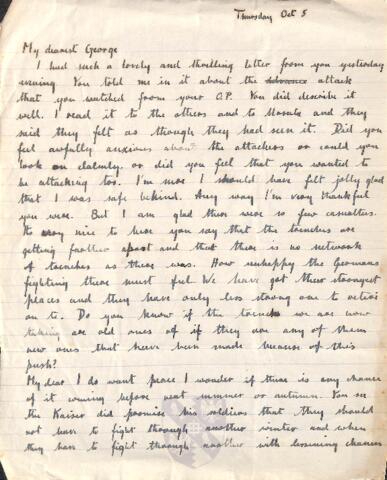 Thursday Oct 5
My dearest George
I had such a lovely and thrilling letter from you yesterday
evening You told me in it about the advance attack
that you watched from your O.P. You did describe it
well. I read it to the others and to Ursula and they
said they felt as though they had seen it. Did you
feel awfully anxious about the attackers or could you
look on calmly or did you feel that you wanted to
be attacking too. I'm sure I should have felt jolly glad
that I was safe behind. Any way I'm very thankful
you were. But I am glad there were so few casualties.
It very nice to hear you say that the trenches are
getting farther apart and that there is no network
of trenches as there was. How unhappy the Germans
fighting there must feel We have got their strongest
places and they have only less strong one to retire
on to. Do you know if the trench we are now
taking are old ones of if they are any of them
new ones that have been made because of this
push?
My dear I do want peace I wonder if there is any chance
of it coming before next summer or autumn. You see
the Kaiser did promise his soldiers that they should
not have to fight through another winter and when
they have to fight through another with lessening chances